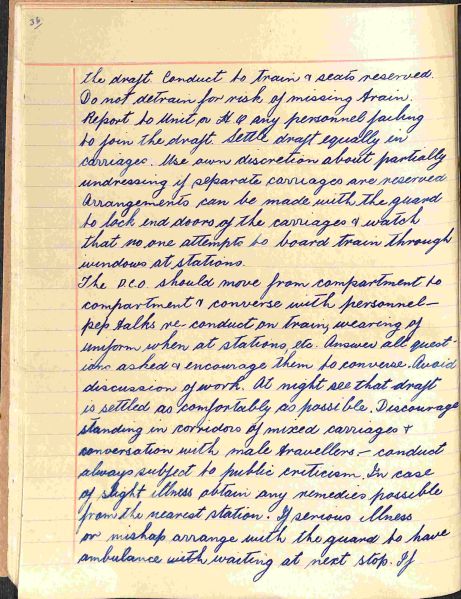 36
the draft. Conduct to train & seats reserved.
Do not detrain for risk of missing train.
Report to Unit or H Q any personnel failing
to join the draft. Settle draft equally in
carriages. Use own discretion about partially
undressing if separate carriages are reserved
Arrangements can be made with the guard
to lock end doors of the carriages & watch
that no one attempts to board train through
windows at stations.
The D.C.O. should move from compartment to
compartment & converse with personnel -
pep talks re- conduct on train, wearing of
uniform when at stations, etc. Answer all quest-
ions asked & encourage them to converse. Avoid
discussion of work. At night see that draft
is settled as comfortably as possible. Discourage
standing in corridors of mixed carriages &
conversation with male travellers - conduct
always subject to public criticism. In case
of slight illness obtain any remedies possible
from the nearest station. If serious illness
or mishap arrange with the guard to have
ambulance waiting at next stop. If